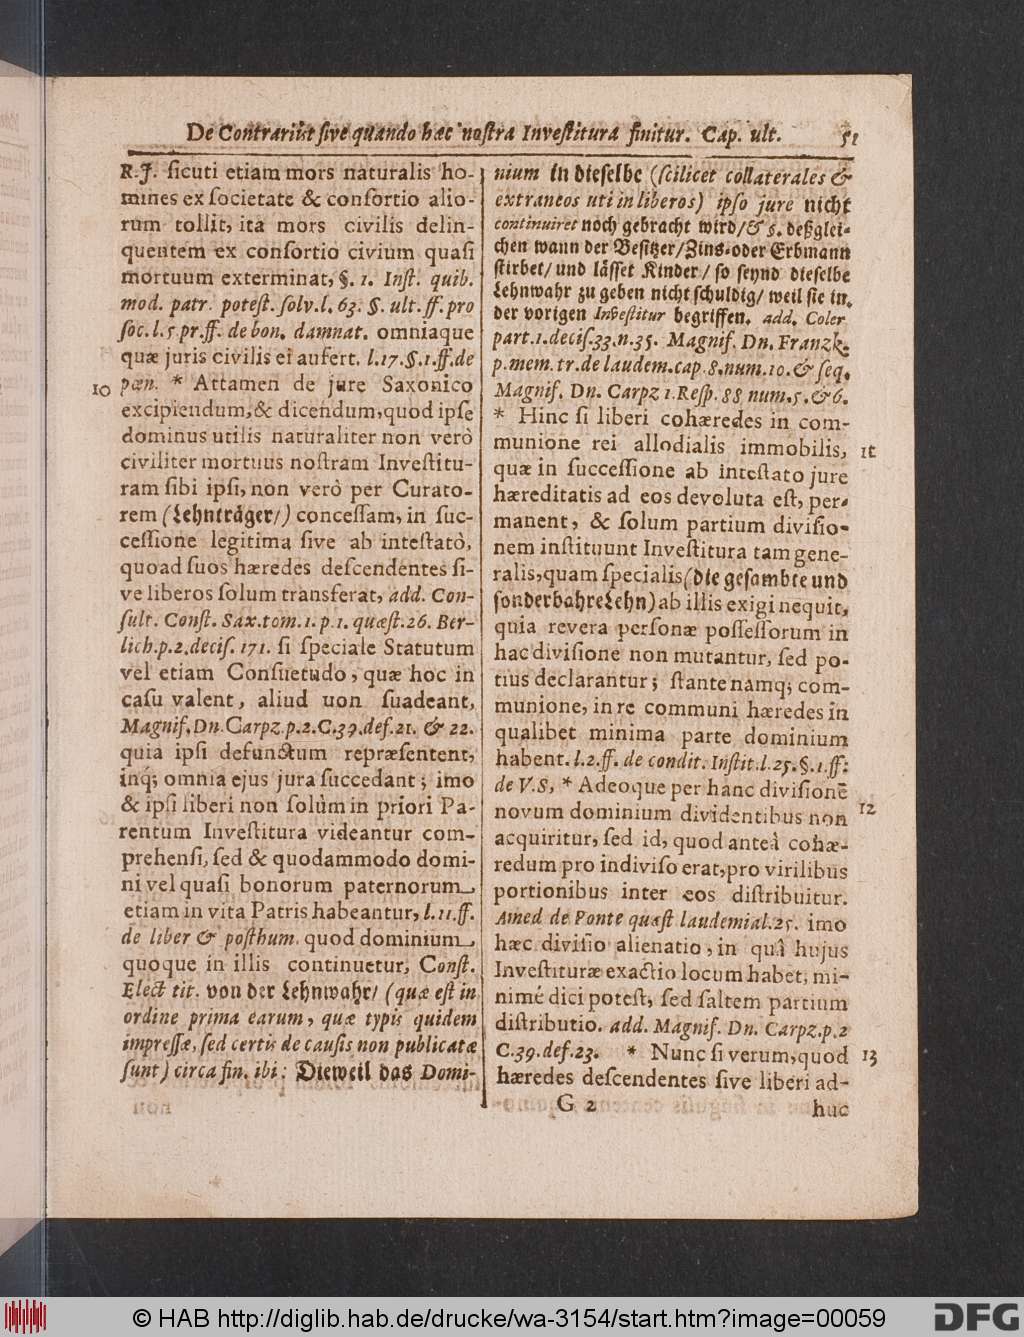 De Contrariis sive quando hæc nostra Investitura finitur. Cap. ult. 51
R. J. ſicuti etiam mors naturalis ho-
mines ex ſocietate & conſortio alio-
rum tollit, ita mors civilis delin-
quentem ex conſortio civium quaſi
mortuum exterminat, §. 1. Inſt. quib.
mod. patr. poteſt. ſolv. l. 63. §. ult. ff. pro
ſoc. l. 5 pr. ff. de bon. damnat. omniaque
quæ juris civilis ei aufert. l. 17. §. 1. ff. de
10 pœn. * Attamen de jure Saxonico
excipiendum, & dicendum, quod ipſe
dominus utilis naturaliter non verò
civiliter mortuus noſtram Inveſtitu-
ram ſibi ipſi, non verò per Curato-
rem (Lehnträger/) conceſſam, in ſuc-
ceſſione legitima ſive ab inteſtatò,
quoad ſuos hæredes deſcendentes ſi-
ve liberos ſolum transferat, add. Con-
ſult. Conſt. Sax. tom. 1. p. 1. quæſt. 26. Ber-
lich. p. 2. deciſ. 171. ſi ſpeciale Statutum
vel etiam Conſuetudo, quæ hoc in
caſu valent, aliud uon ſuadeant,
Magnif. Dn. Carpz. p. 2. C. 39. def. 21. & 22.
quia ipſi defunctum repræſentent,
inq; omnia ejus jura ſuccedant; imo
& ipſi liberi non ſolùm in priori Pa-
rentum Inveſtitura videantur com-
prehenſi, ſed & quodammodo domi-
ni vel quaſi bonorum paternorum,
etiam in vita Patris habeantur, l. 11. ff.
de liber & poſthum. quod dominium,
quoque in illis continuetur, Conſt.
Elect tit. von der Lehnwahr/ (quæ eſt in
ordine prima earum, quæ typis quidem
impreſſæ, ſed certis de cauſis non publicatæ
ſunt) circa fin. ibi: Dieweil das Domi-
nium in dieſelbe (ſcilicet collaterales &
extraneos uti in liberos) ipſo jure nicht
continuiret noch gebracht wird/ & s. deßglei-
chen wann der Beſitzer/ Zins- oder Erbmann
ſtirbet/ und läſſet Kinder/ ſo ſeynd dieſelbe
Lehnwahr zu geben nicht ſchuldig/ weil ſie in,
der vorigen Inveſtitur begriffen. add. Coler
part. 1. deciſ. 33. n. 35. Magnif. Dn. Franzk.
p. mem. tr. de laudem. cap. 8. num. 10. & ſeq.
Magnif. Dn. Carpz 1. Reſp. 88 num. 5. & 6.
* Hinc ſi liberi cohæredes in com-
munione rei allodialis immobilis, 11
quæ in ſucceſſione ab inteſtato jure
hæreditatis ad eos devoluta eſt, per-
manent, & ſolum partium diviſio-
nem inſtituunt Inveſtitura tam gene-
ralis, quam ſpecialis (die geſambte und
ſonderbahre Lehn) ab illis exigi nequit,
quia revera perſonæ poſſeſſorum in
hac diviſione non mutantur, ſed po-
tius declarantur; ſtante namq; com-
munione, in re communi hæredes in
qualibet minima parte dominium
habent. l. 2. ff. de condit. Inſtit. l. 25. §. 1. ff.
de V. S, * Adeoque per hanc diviſionē
novum dominium dividentibus non 12
acquiritur, ſed id, quod anteà cohæ-
redum pro indiviſo erat, pro virilibus
portionibus inter eos diſtribuitur.
Amed de Ponte quæſt laudemial. 25. imo
hæc diviſio alienatio, in quâ hujus
Inveſtituræ exactio locum habet, mi-
nimé dici poteſt, ſed ſaltem partium
diſtributio. add. Magnif. Dn. Carpz. p. 2
C. 39. def. 23. * Nunc ſi verum, quod 13
hæredes deſcendentes ſive liberi ad-
G 2 huc
© HAB http://diglib.hab.de/drucke/wa-3154/start.htm?image=00059
DFG